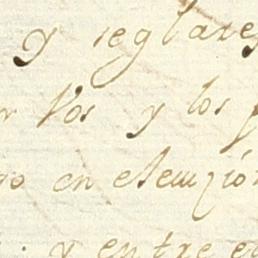 y reglares
Vos y los
en execuçión
y entre